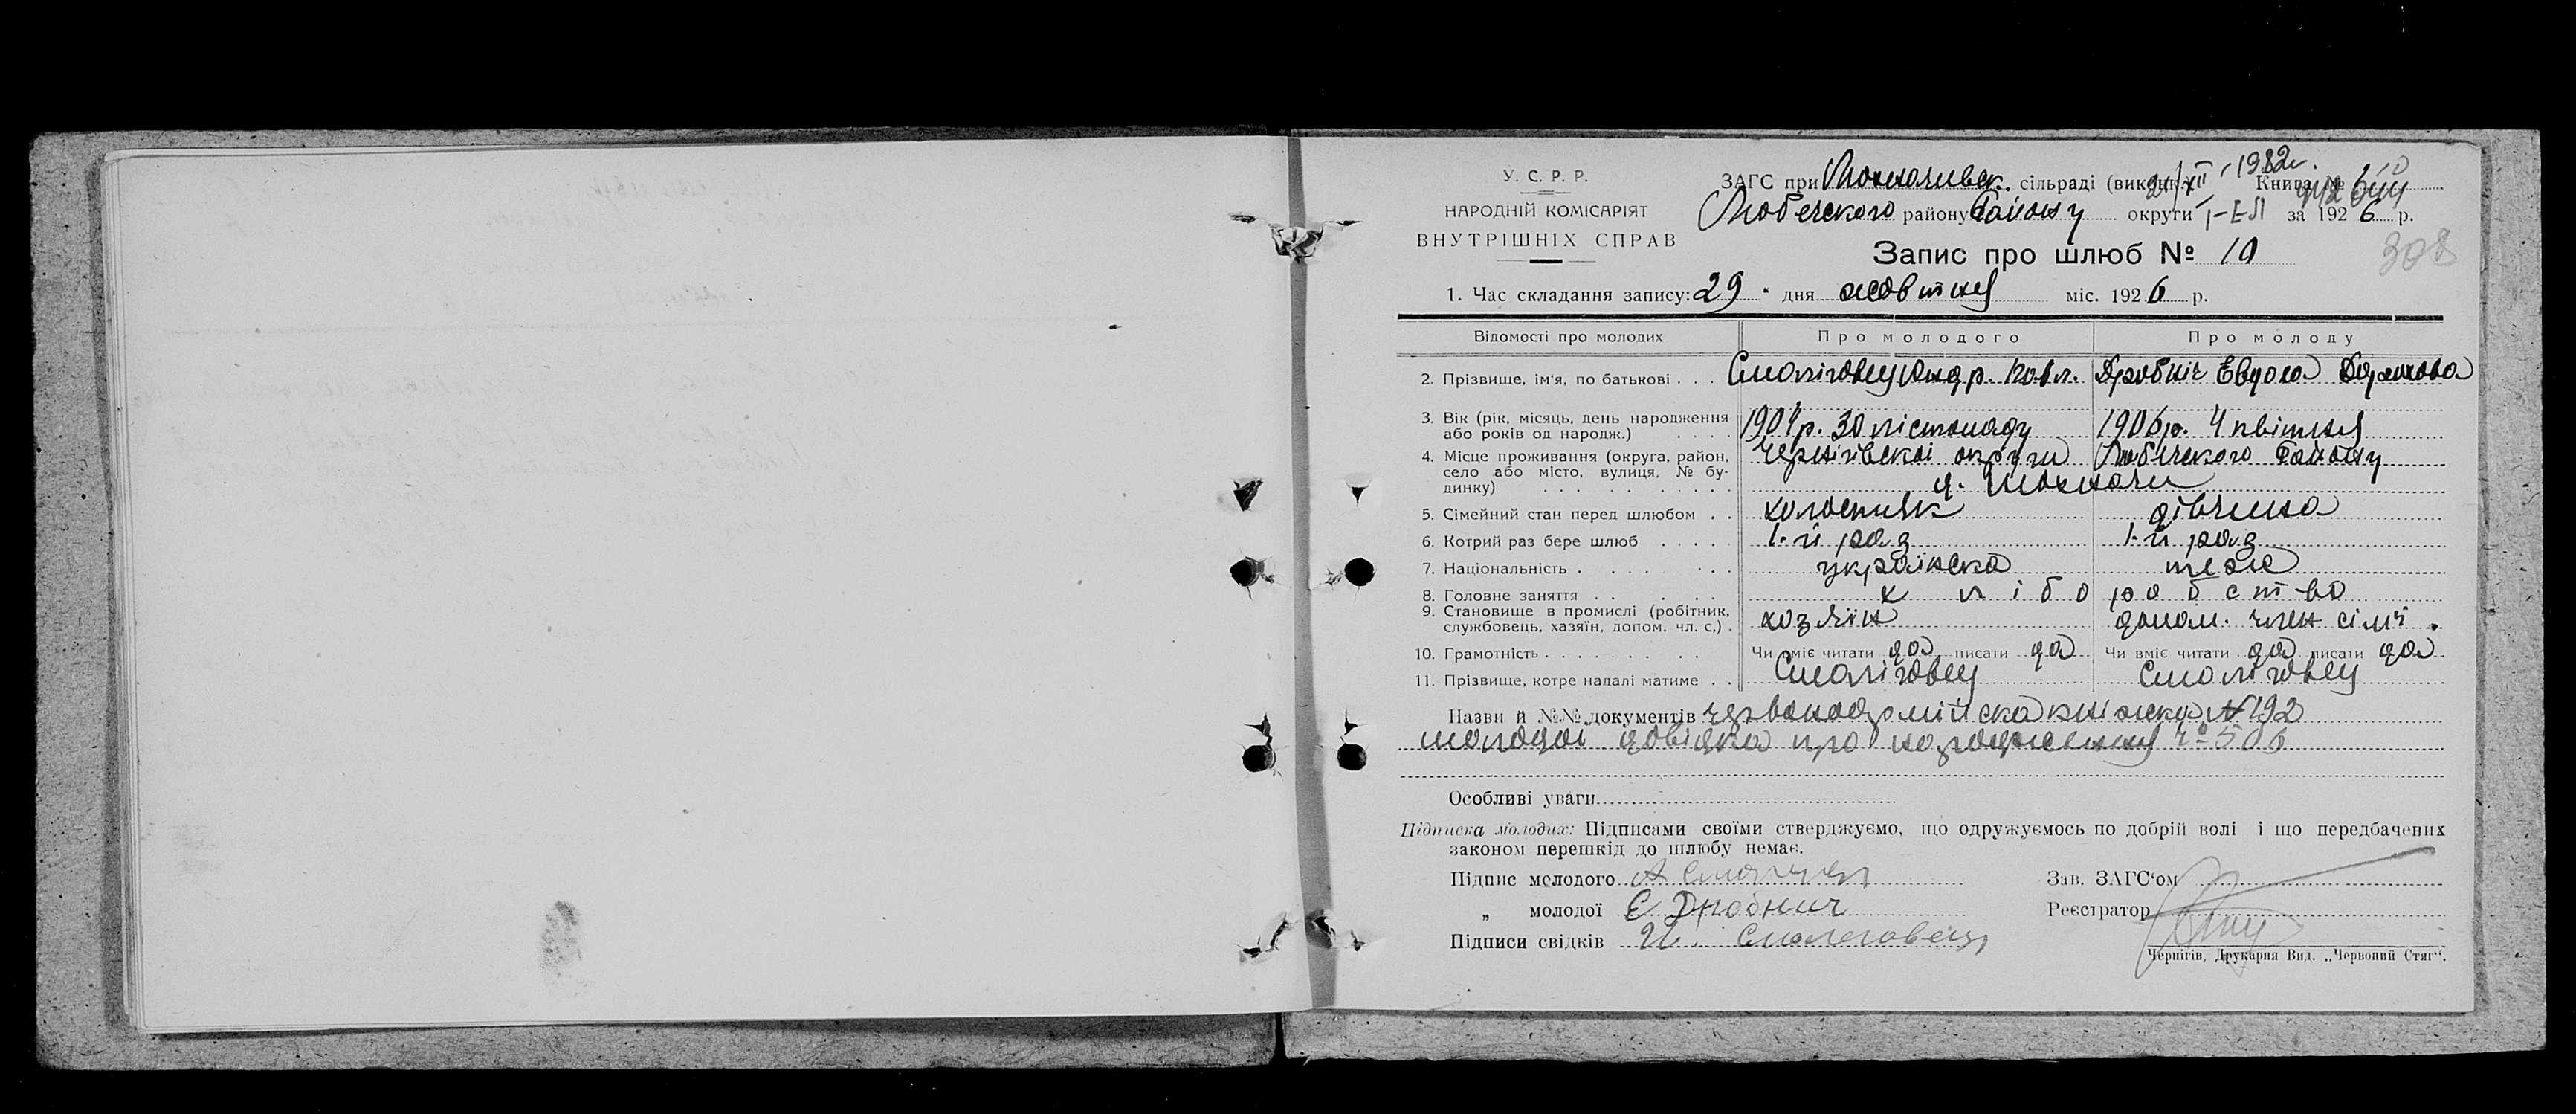 У. С. Р. Р.
НАРОДНІЙ КОМІСАРІЯТ
ВНУТРІШНІХ СПРАВ
ЗАГС при сільраді (викон Книга №
Любечского району Району округи за 1926 р.
Запис про шлюб № 10
308
1. Час складання запису: 29 дня жовтня міс. 1926 р.
Відомості про молодих Про молодого Про молоду
2. Прізвище, ім'я, по батькові . . . Смоліговец Андр. Павл. Дробніч Евдокія
3. Вік (рік, місяць, день народження 1904р. 30 лістопаду 1906р. 4 квітня
або років од народж.) . . . .
4. Місце проживання (округа, район, Чернігівскоі округи Любечского Району
село або місто, вулиця, № бу-
динку) . . . . . . . . .
5. Сімейний стан перед шлюбом . . холостяк дівчина
6. Котрий раз бере шлюб . . . . . 1-й раз 1-й раз
7. Національність . . . . . . . українска теж
8. Головне заняття . . . . . хліборобство
9. Становище в промислі (робітник, хозяїн допом. член сім'ї.
службовець, хазяїн, допом. чл. с.) .
10. Грамотність . . . . . . . . Чи вміє читати да писати да Чи вміє читати да писати да
11. Прізвище, котре надалі матиме . . Смоліговец Смоліговец
Назви й №№ документів червоноармійска книжка № 192
молодоі довідка про народження № 506
Особливі уваги
Підписка молодих: Підписами своїми стверджуємо, що одружуємось по добрій волі і що передбачених
законом перешкід до шлюбу немає.
Підпис молодого А Зав. ЗАГС'ом
„ молодої Є Дробнич Реєстратор
Підписи свідків И. Смолеговец
Чернігів, Друкарня Вид. „Червоний Стяг“.